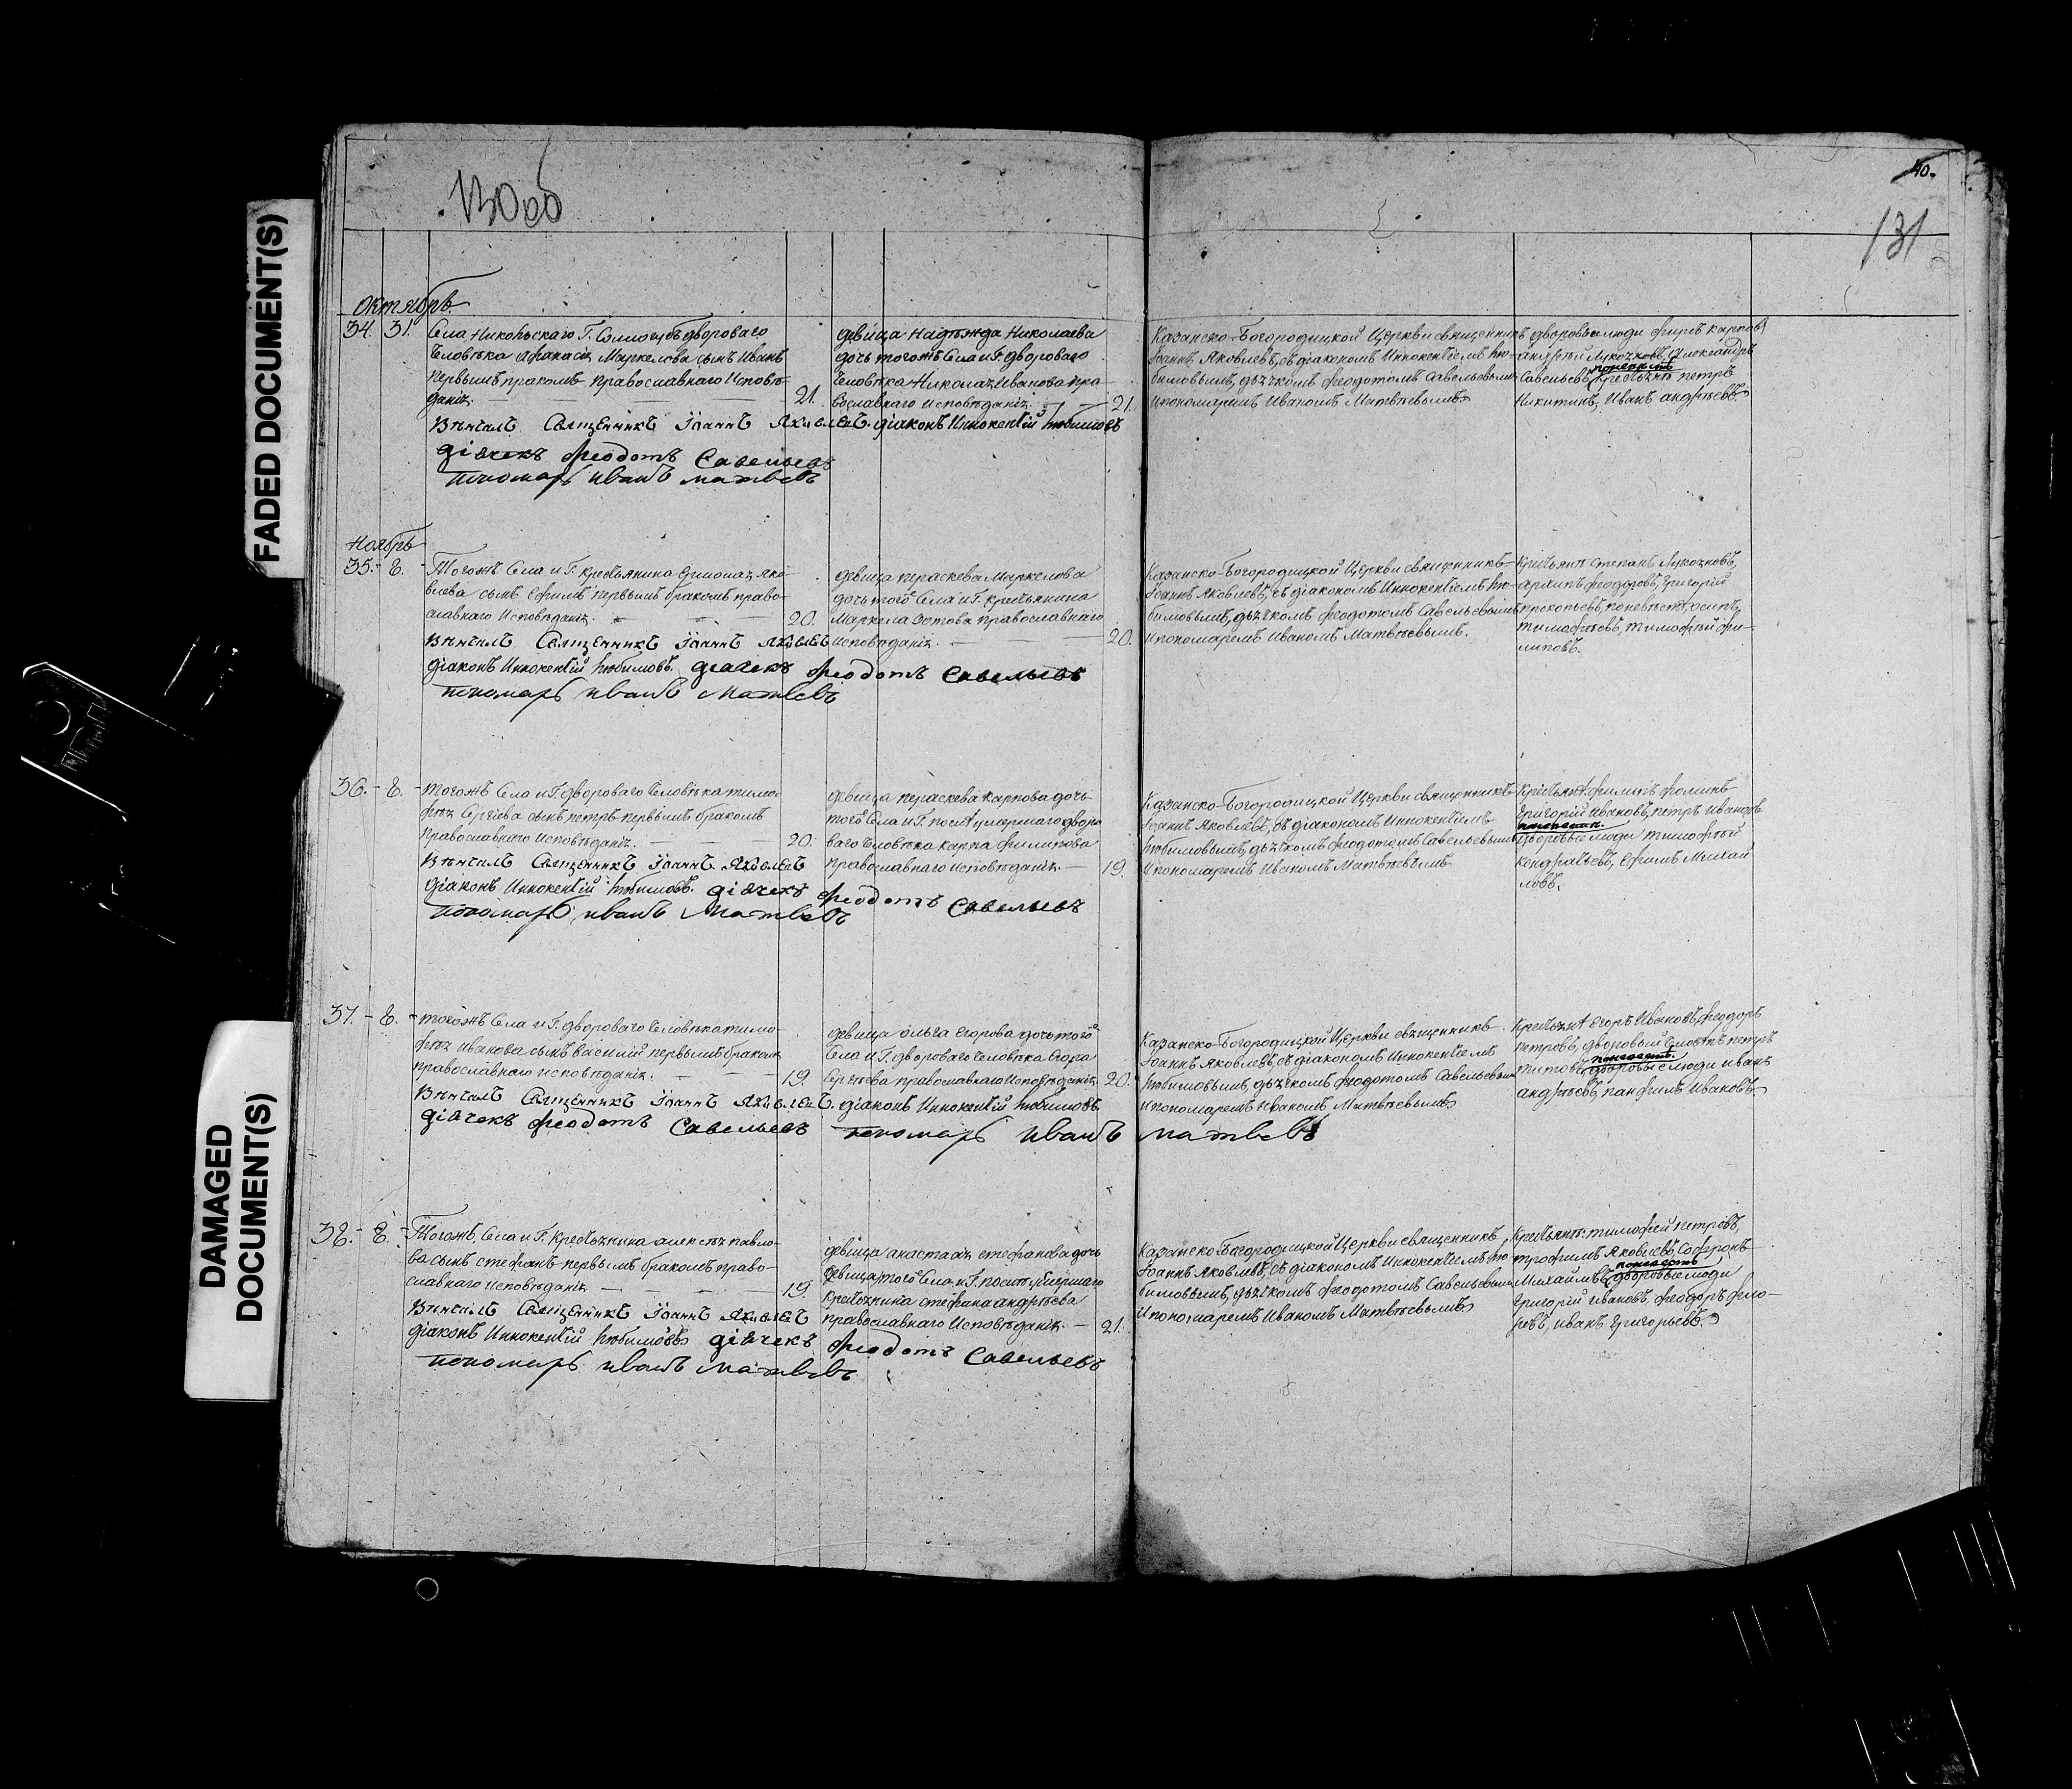 FADED DOCUMENT(S)
DAMAGED DOCUMENT(S)
130об
40.
131
Октябрь.
34. 31. Села Никольскаго Г. двороваго
человѣка Афанасія Маркелова сынъ Иванъ
первымъ бракомъ православнаго исповѣ-
данія. 21.
дѣвица Надѣжда Николаева
дочь тогожъ Села и Г. двороваго
человѣка Николая Иванова пра-
вославнаго исповѣданія. 21.
Казанско-Богородицкой Церкви священникъ
Іоаннъ Яковлевъ, съ діакономъ Иннокентіемъ Лю-
бимовымъ, дьячкомъ Феодотомъ Савельевымъ
и пономаремъ Иваномъ Матвѣевымъ
дворовые люди Фирсъ Карповъ
Андрѣй Александръ
Савельевъ, поневѣстѣ крестьянѣ Петръ
Никитинъ, Иванъ Андрѣевъ
Вѣнчалъ Священникъ Іоаннъ Яковлевъ. Діаконъ Иннокентій Любимовъ
Дiячекъ Феодотъ Савельевъ
Пономарь Иванъ Матвевъ
Ноябрь
35. - 8. - Тогожъ Села и Г. крестьянина Яко-
влева сынъ Ефимъ первымъ бракомъ право-
славнаго исповѣданія. 20.
дѣвица Пераскева Маркелова
дочь того Села и Г. крестьянина
Маркела Зотова православнаго
исповѣданія. 20.
Казанско-Богородицкой Церкви священникъ
Іоаннъ Яковлевъ, съ діакономъ Иннокентіемъ Лю-
бимовымъ, дьячкомъ Феодотомъ Савельевымъ
и пономаремъ Иваномъ Матвѣевымъ.
Крестьянѣ Степанъ
Архипъ Феодоровъ, Григорій
Прокопьевъ, поневѣстѣ, Осипъ
Тимофѣевъ, Тимофѣй Фи-
липовъ.
Вѣнчалъ Священникъ Іоаннъ Яковлевъ
Діаконъ Иннокентій Любимовъ. Дiячекъ Феодотъ Савельевъ
Пономарь Иванъ Матвевъ
36. - 8. - Тогожъ Села и Г. двороваго человѣка Тимо-
фѣя Сергѣева сынъ Петръ первымъ бракомъ
православнаго исповѣданія. 20.
дѣвица Пераскева Карпова дочь
того Села и Г. послѣ умершаго дворо-
ваго человѣка Карпа Филипова
православнаго исповѣданія. - 19.
Казанско-Богородицкой Церкви священникъ
Іоаннъ Яковлевъ, съ діакономъ Иннокентіемъ
Любимовымъ, дьячкомъ Феодотомъ Савельевымъ
и пономаремъ Иваномъ Матвѣевымъ
Крестьянѣ Филипъ Фоминъ
Григорій Ивановъ, Петръ Ивановъ
дворовые люди Тимофѣй
Кондратьевъ, Ефимъ Михай
ловъ.
Вѣнчалъ Священникъ Іоаннъ Яковлевъ
Діаконъ Иннокентій Любимовъ. Дiячекъ Феодотъ Савельевъ
Пономарь Иванъ Матвевъ
37. - 8. - Тогожъ Села и Г. двороваго человѣка Тимо-
фѣя Иванова сынъ Василій первымъ бракомъ
православнаго исповѣданія. 19.
дѣвица Ольга Егорова дочь того
Села и Г. двороваго человѣка Егора
Сергѣева православнаго исповѣданія. 20.
Казанско-Богородицкой Церкви священникъ
Іоаннъ Яковлевъ, съ діакономъ Иннокентіемъ
Любимовымъ, дьячкомъ Феодотомъ Савельевымъ
и пономаремъ Иваномъ Матвѣевымъ
Крестьянѣ Егоръ Ивановъ, Феодоръ
Петровъ, дворовый человѣкъ Петръ
Титовъ, поневѣстѣ. дворовые люди Иванъ
Андрѣевъ, Панфилъ Ивановъ.
Вѣнчалъ Священникъ Іоаннъ Яковлевъ. Діаконъ Иннокентій Любимовъ.
Дiячекъ Феодотъ Савельевъ Пономарь Иванъ Матвевъ
38. - 8. - Тогожъ Села и Г. крестьянина Алексѣя Павло-
ва сынъ Стефанъ первымъ бракомъ право-
славнаго исповѣданія 19.
дѣвица Анастасія Стефанова дочь
дѣвица того Села и Г. послѣ умершаго
крестьянина Стефана Андрѣева
православнаго исповѣданія. - 21.
Казанско-Богородицкой Церкви священникъ
Іоаннъ Яковлевъ, съ діакономъ Иннокентіемъ Лю-
бимовымъ, дьячкомъ Феодотомъ Савельевымъ
и пономаремъ Иваномъ Матвѣевымъ
Крестьянѣ: Тимофей Петровъ,
Трофимъ Яковлевъ, Софронъ
Михайловъ, поневѣстѣ дворовые люди
Григорій Ивановъ, Феодоръ Фло-
ровъ, Иванъ Григорьевъ.
Вѣнчалъ Священникъ Іоаннъ Яковлевъ
Діаконъ Иннокентій Любимовъ Дiячекъ Феодотъ Савельевъ
Пономарь Иванъ Матвевъ